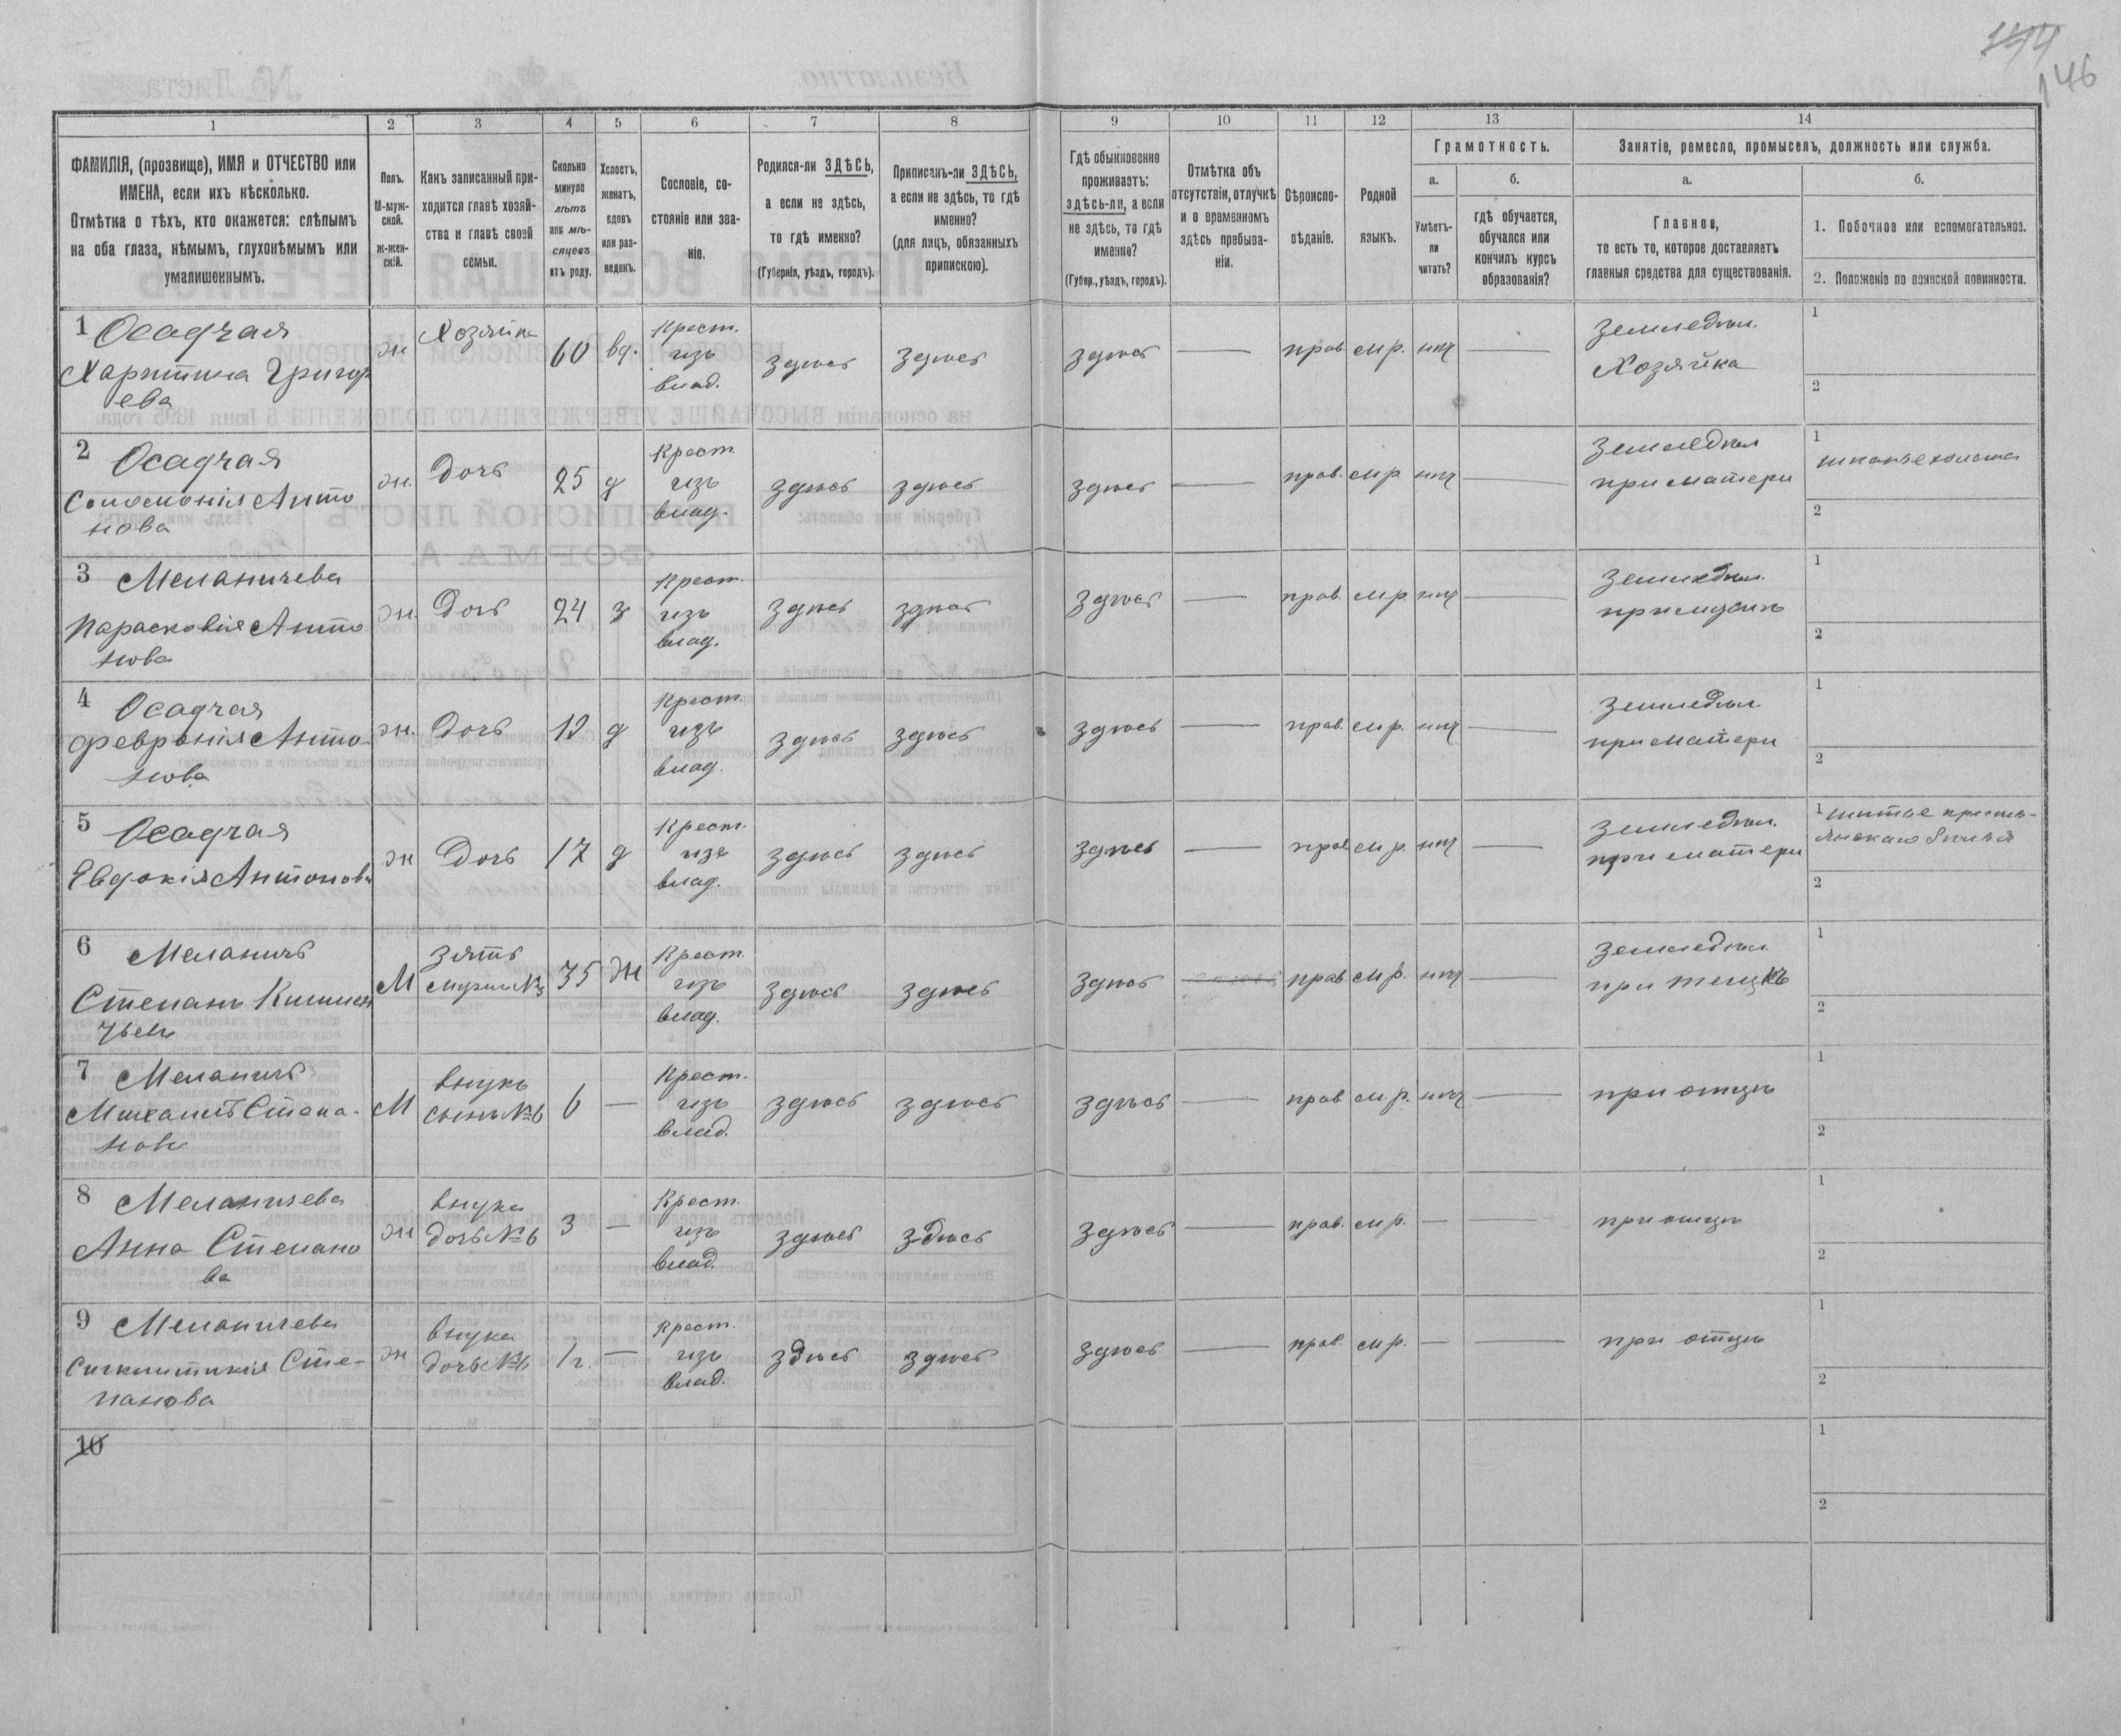 144
146
1
2
3
4
5
6
7
8
9
10
11
12
13
14
ФАМИЛІЯ, (прозвище), ИМЯ и ОТЧЕСТВО или
ИМЕНА, если ихъ нѣсколько.
Отмѣтка о тѣхъ, кто окажется: слѣпымъ
на оба глаза, нѣмымъ, глухонѣмымъ или
умалишеннымъ.
Полъ.
М-муж-
ской.
ж-жен-
скій.
Какъ записанный при-
ходится главѣ хозяй-
ства и главѣ своей
семьи.
Сколько
минуло
лѣтъ
или мѣ-
сяцевъ
отъ роду.
Холостъ,
женатъ,
вдовъ
или раз-
веденъ.
Сословіе, со-
стояніе или зва-
ніе.
Родился-ли ЗДѢСЬ,
а если не здѣсь,
то гдѣ именно?
(Губернія, уѣздъ, городъ).
Приписанъ-ли ЗДѢСЬ,
а если не здѣсь, то гдѣ
именно?
(для лицъ, обязанныхъ
припискою).
Гдѣ обыкновенно
проживаетъ:
здѣсь-ли, а если
не здѣсь, то гдѣ
именно?
(Губер., уѣздъ, городъ).
Отмѣтка объ
отсутствіи, отлучкѣ
и о временномъ
здѣсь пребыва-
ніи.
Вѣроиспо-
вѣданіе.
Родной
языкъ.
Грамотность.
а.
Умѣетъ-
ли
читать?
б.
гдѣ обучается,
обучался или
кончилъ курсъ
образованія?
Занятіе, ремесло, промыселъ, должность или служба.
а.
Главное,
то есть то, которое доставляетъ
главныя средства для существованія.
б.
1. Побочное или вспомогательное.
2. Положеніе по воинской повинности.
1 Осадчая
Харитина Григор
ева
ж
Хозяйка
60
вд.
Крест.
изъ
влад.
здѣсь
здѣсь
здѣсь
—
прав
мр.
нѣт
—
Земледѣл.
Хозяйка
1
2
2 Осадчая
Соломонія Анто
нова
ж.
Дочь
25
д
Крест
изъ
влад.
здѣсь
здѣсь
здѣсь
—
прав.
мр
нѣт
—
Земледѣл
при матери
1 тканье холста
2
3 Меланичева
Парасковія Анто
нова
ж.
Дочь
24
з
Крест.
изъ
влад.
здѣсь
здѣсь
здѣсь
—
прав.
мр
нѣт
—
Земледѣл.
при мужѣ
1
2
4 Осадчая
Февронія Анто
нова
ж.
Дочь
12
д
Крест.
изъ
влад.
здѣсь
здѣсь
здѣсь
—
прав.
мр.
нѣт
—
Земледѣл.
при матери
1
2
5 Осадчая
Евдокія Антонова
ж
Дочь
17
д
Крест.
изъ
влад.
здѣсь
здѣсь
здѣсь
—
прав
мр.
нѣт
—
Земледѣл.
при матери
1 шитье кресть-
янскаго бѣлья
2
6 Меланичъ
Степанъ
М
зять
мужъ №3
35
Ж
Крест
изъ
влад.
здѣсь
здѣсь
здѣсь
прав
мр.
нѣт
—
Земледѣл.
при тещѣ
1
2
7 Меланичъ
Михаилъ Степа-
новъ
М
внукъ
сынъ №6
6
—
Крест.
изъ
влад.
здѣсь
здѣсь
здѣсь
—
прав
мр.
нѣт
—
при отцѣ
1
2
8 Меланичева
Анна Степано
ва
ж
внука
дочь №6
3
—
Крест.
изъ
влад.
здѣсь
здѣсь
здѣсь
—
прав.
мр.
—
—
при отцѣ
1
2
9 Меланичева
Синклитикія Сте-
панова
ж
внука
дочь №6
1 г.
—
Крест.
изъ
влад.
здѣсь
здѣсь
здѣсь
—
прав
мр.
—
—
при отцѣ
1
2
10
1
2